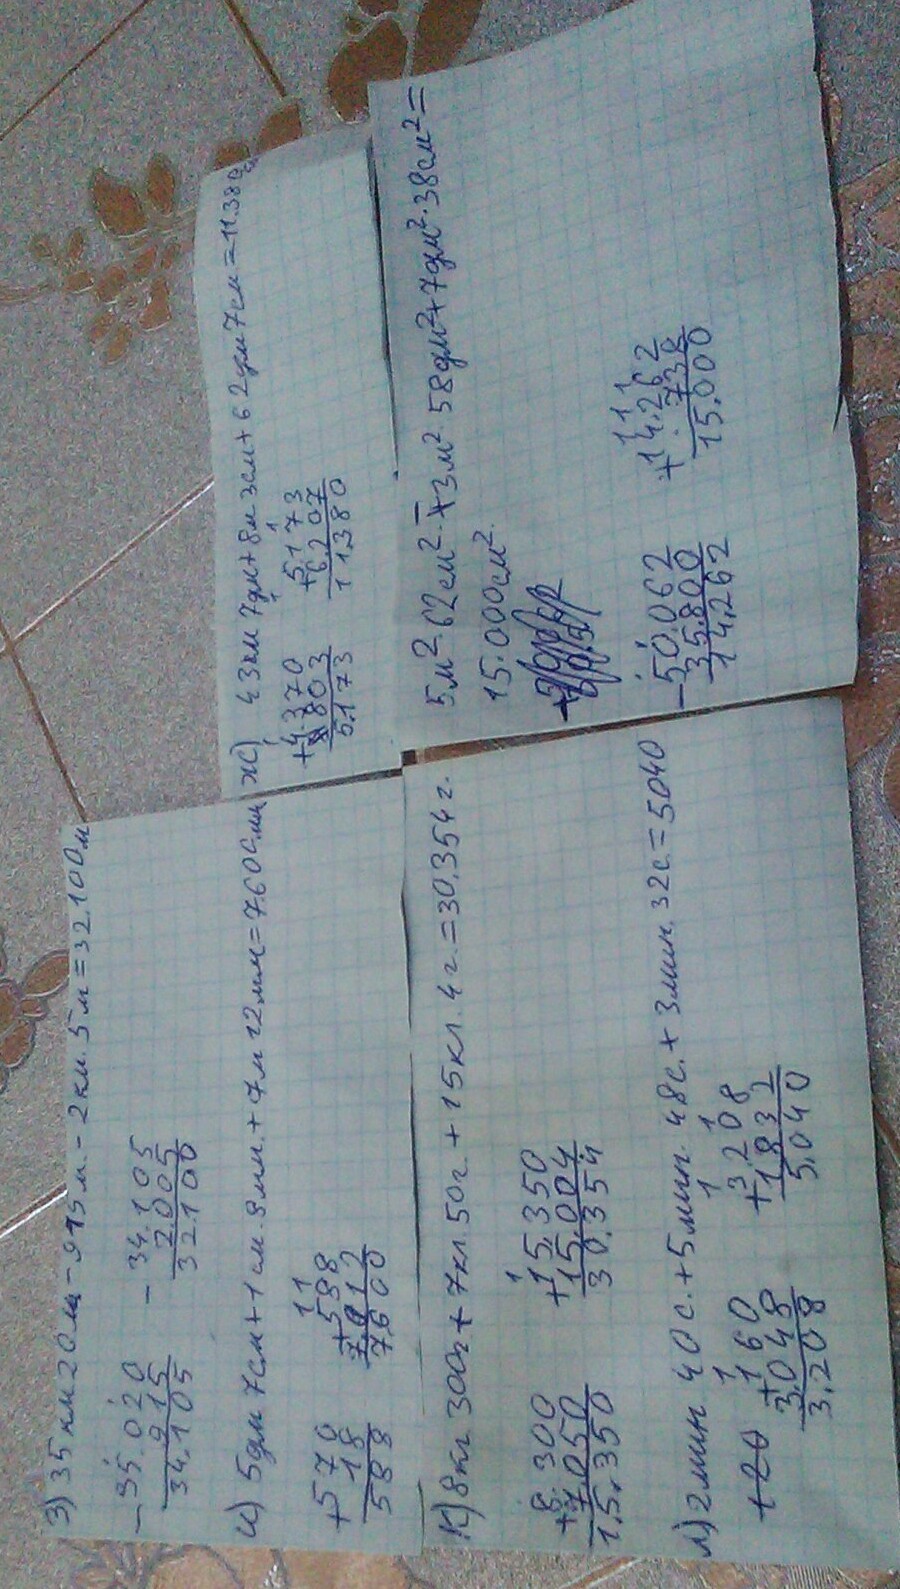 З) 35 км 20 м - 915 м. - 2 км. 5 м = 32.100 м
- 35.020
915
34.105
- 34.105
2.005
32.100
и) 5 дм 7 см + 1 см. 8 мм. + 7 м 12 мм = 7.600 мм
+ 570
18
588
1 1
+ 588
7.012
7.600
К) 8 кг 300 г + 7 кл. 50 г. + 15 кл. 4 г. = 30.354 г.
+ 8.300
7.050
15.350
1
+ 15.350
15.004
30.354
л) 2 мин 40 с. + 5 мин. 48 с. + 3 мин. 32 с. = 5040
1
+ 160
3.048
3.208
1 1
+ 3.208
1832
5.040
ж) 43 км 7 дм + 8 м 3 см + 62 дм 7 см = 11.380
+ 4.370
803
5.173
1 1
+ 5173
6.207
11.380
5 м². 62 см². - 3 м². 58 дм² + 7 дм². 38 см² =
15.000 см².
- 50.062
35.800
14.262
1 1 1
+ 14.262
738
15.000